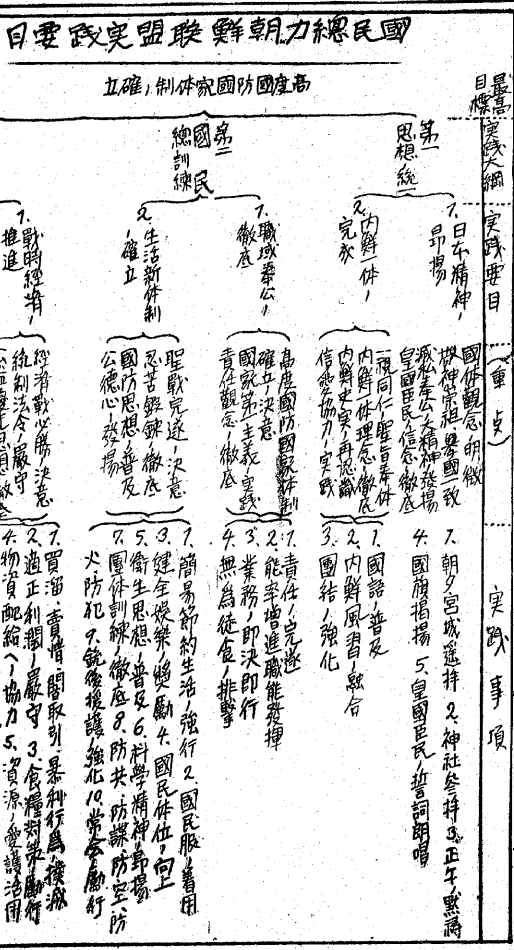 國民總力朝鮮聯盟実践要目
高度國防國家体制ノ確立
最高目標
実践大綱
実践要目
(重点)
実践事項
第一
思想統一
1. 日本精神ノ
昂揚
國体観念ノ明徴
敬神崇祖、擧國一致
滅私奉公ノ大精神発揚
皇國臣民ノ信念徹底
1. 朝夕宮城遥拝 2. 神社参拝 3. 正午ノ黙祷
4. 國旗掲揚 5. 皇國臣民ノ誓詞朗唱
2. 内鮮一体ノ
完成
一視同仁ノ聖旨奉体
内鮮一体理念ノ徹底
内鮮史実ノ再認識
信愛協力ノ実践
1. 國語ノ普及
2. 内鮮風習ノ融合
3. 團結ノ強化
第二
國民
總訓練
1. 職域奉公ノ
徹底
高度國防國家体制
確立ノ決意
國家第一主義ノ実践
責任観念ノ徹底
1. 責任ノ完遂
2. 能率増進職能発揮
3. 業務ノ即決即行
4. 無為徒食ノ排撃
2. 生活新体制
ノ確立
聖戰完遂ノ決意
忍苦鍛錬ノ徹底
國防思想ノ普及
公徳心ノ発揚
1. 簡易節約生活ノ強行 2. 國民服ノ着用
3. 健全娯楽ノ奨勵 4. 國民体位ノ向上
5. 衛生思想ノ普及 6. 科學精神ノ昂揚
7. 團体訓練ノ徹底 8. 防共防諜防空防
火防犯 9. 銃後援護ノ強化 10. 常会ノ励行
1. 戰時経済ノ
推進
経済戰必勝ノ決意
統制法令ノ嚴守
1. 買溜、賣惜、闇取引、暴利行為ノ撲滅
2. 適正利潤ノ嚴守 3. 食糧対策ノ励行
4. 物資配給ヘノ協力 5. 資源ノ愛護活用